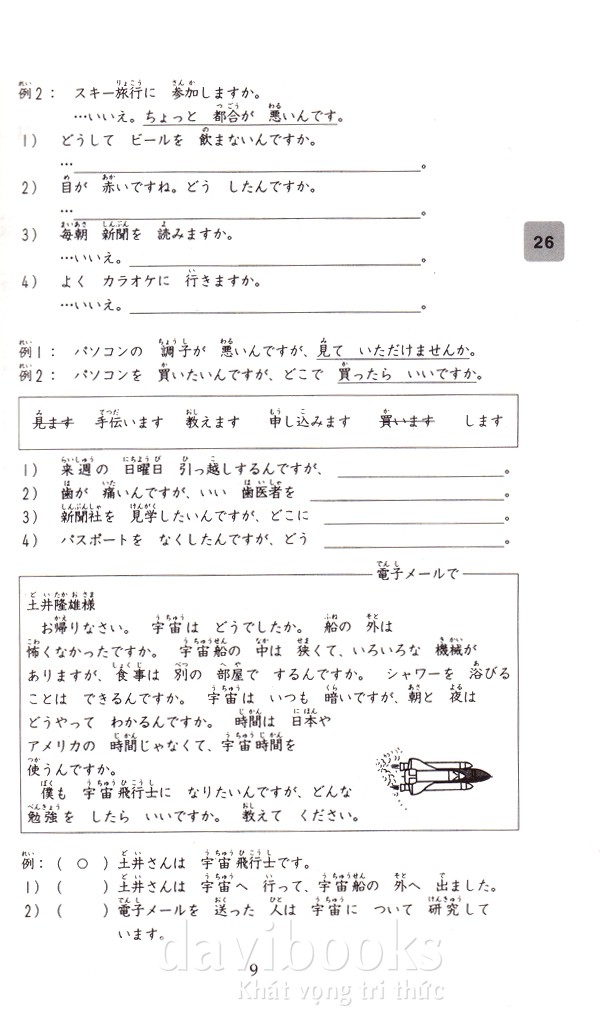 例2： スキー旅行に 参加しますか。
…いいえ。ちょっと 都合が 悪いんです。
1） どうして ビールを 飲まないんですか。
…＿＿＿＿＿＿＿＿＿＿＿＿。
2） 目が 赤いですね。どう したんですか。
…＿＿＿＿＿＿＿＿＿＿＿＿。
3） 毎朝 新聞を 読みますか。
…いいえ。＿＿＿＿＿＿＿＿＿＿。
26
4） よく カラオケに 行きますか。
…いいえ。＿＿＿＿＿＿＿＿＿＿。
例1： パソコンの 調子が 悪いんですが、見て いただけませんか。
例2： パソコンを 買いたいんですが、どこで 買ったら いいですか。
見ます 手伝います 教えます 申し込みます 買います します
1） 来週の 日曜日 引っ越しするんですが、＿＿＿＿＿＿＿＿。
2） 歯が 痛いんですが、いい 歯医者を ＿＿＿＿＿＿＿＿。
3） 新聞社を 見学したいんですが、どこに ＿＿＿＿＿＿＿＿。
4） パスポートを なくしたんですが、どう ＿＿＿＿＿＿＿＿。
電子メールで
土井隆雄様
お帰りなさい。 宇宙は どうでしたか。 船の 外は
怖くなかったですか。 宇宙船の 中は 狭くて、いろいろな 機械が
ありますが、食事は 別の 部屋で するんですか。 シャワーを 浴びる
ことは できるんですか。 宇宙は いつも 暗いですが、朝と 夜は
どうやって わかるんですか。 時間は 日本や
アメリカの 時間じゃなくて、宇宙時間を
使うんですか。
僕も 宇宙飛行士に なりたいんですが、どんな
勉強を したら いいですか。 教えて ください。
例：（ ○ ）土井さんは 宇宙飛行士です。
1）（ ）土井さんは 宇宙へ 行って、宇宙船の 外へ 出ました。
2）（ ）電子メールを 送った 人は 宇宙に ついて 研究して
います。
davibooks
9
Khát vọng tri thức